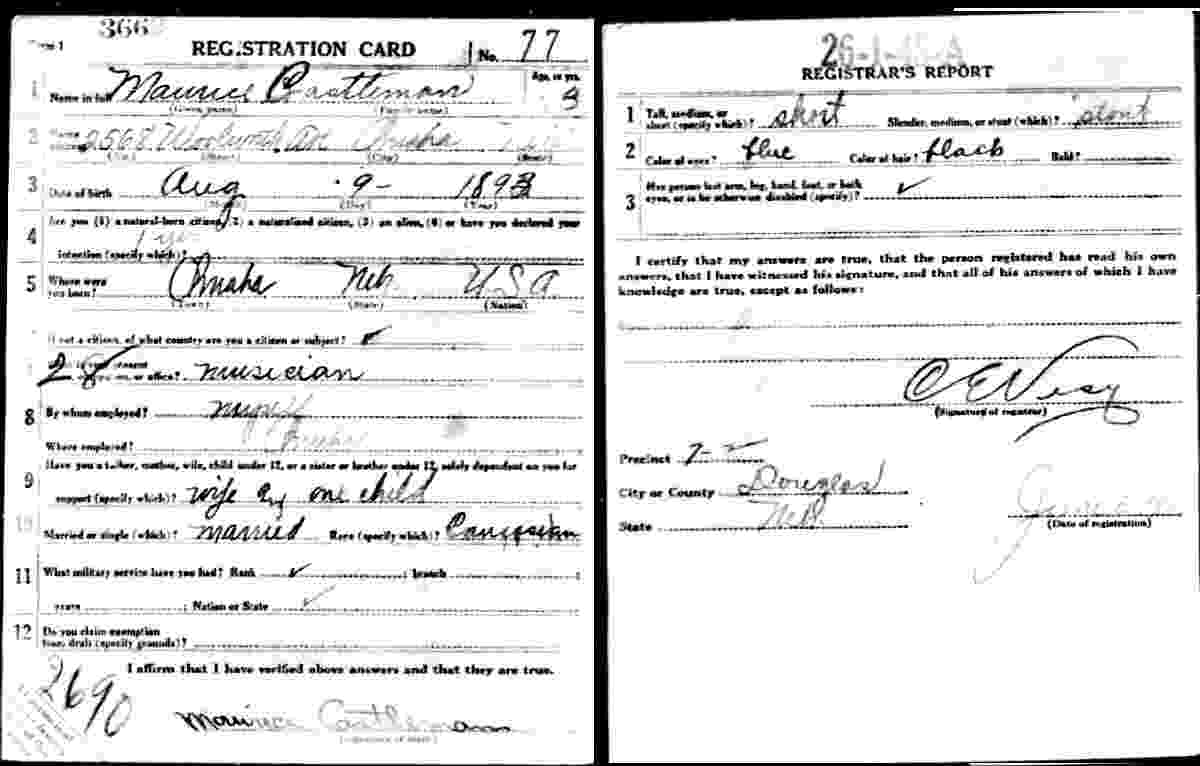 366
REGISTRATION CARD No. 77
1 Name in full Maurice Castleman Age, in yrs.
(Given name) (Family name)
2 2568
(No.) (Street) (City) (State)
3 Date of birth Aug 9 - 1893
(Month) (Day) (Year)
4 Are you (1) a natural-born citizen, (2) a naturalized citizen, (3) an alien, (4) or have you declared your
intention (specify which)?
5 Where were you born? Omaha Neb. USA
(Town) (State) (Nation)
not a citizen, of what country are you a citizen or subject? ✓
or office? musician
8 By whom employed?
Where employed?
9 Have you a father, mother, wife, child under 12, or a sister or brother under 12, solely dependent on you for
support (specify which)? wife one child
10 Married or single (which)? married Race (specify which)? Caucasian
11 What military service have you had? Rank ✓ ; branch ;
years ; Nation or State ✓
12 Do you claim exemption
from draft (specify grounds)?
I affirm that I have verified above answers and that they are true.
2690
Maurice Castleman
(Signature or mark)
REGISTRAR'S REPORT
1 Tall, medium, or
short (specify which)? short Slender, medium, or stout (which)? stout
2 Color of eyes? blue Color of hair? black Bald?
3 Has person lost arm, leg, hand, foot, or both
eyes, or is he otherwise disabled (specify)? ✓
I certify that my answers are true, that the person registered has read his own
answers, that I have witnessed his signature, and that all of his answers of which I have
knowledge are true, except as follows:
(Signature of registrar)
Precinct 7-2
City or County Douglas
State Neb
(Date of registration)